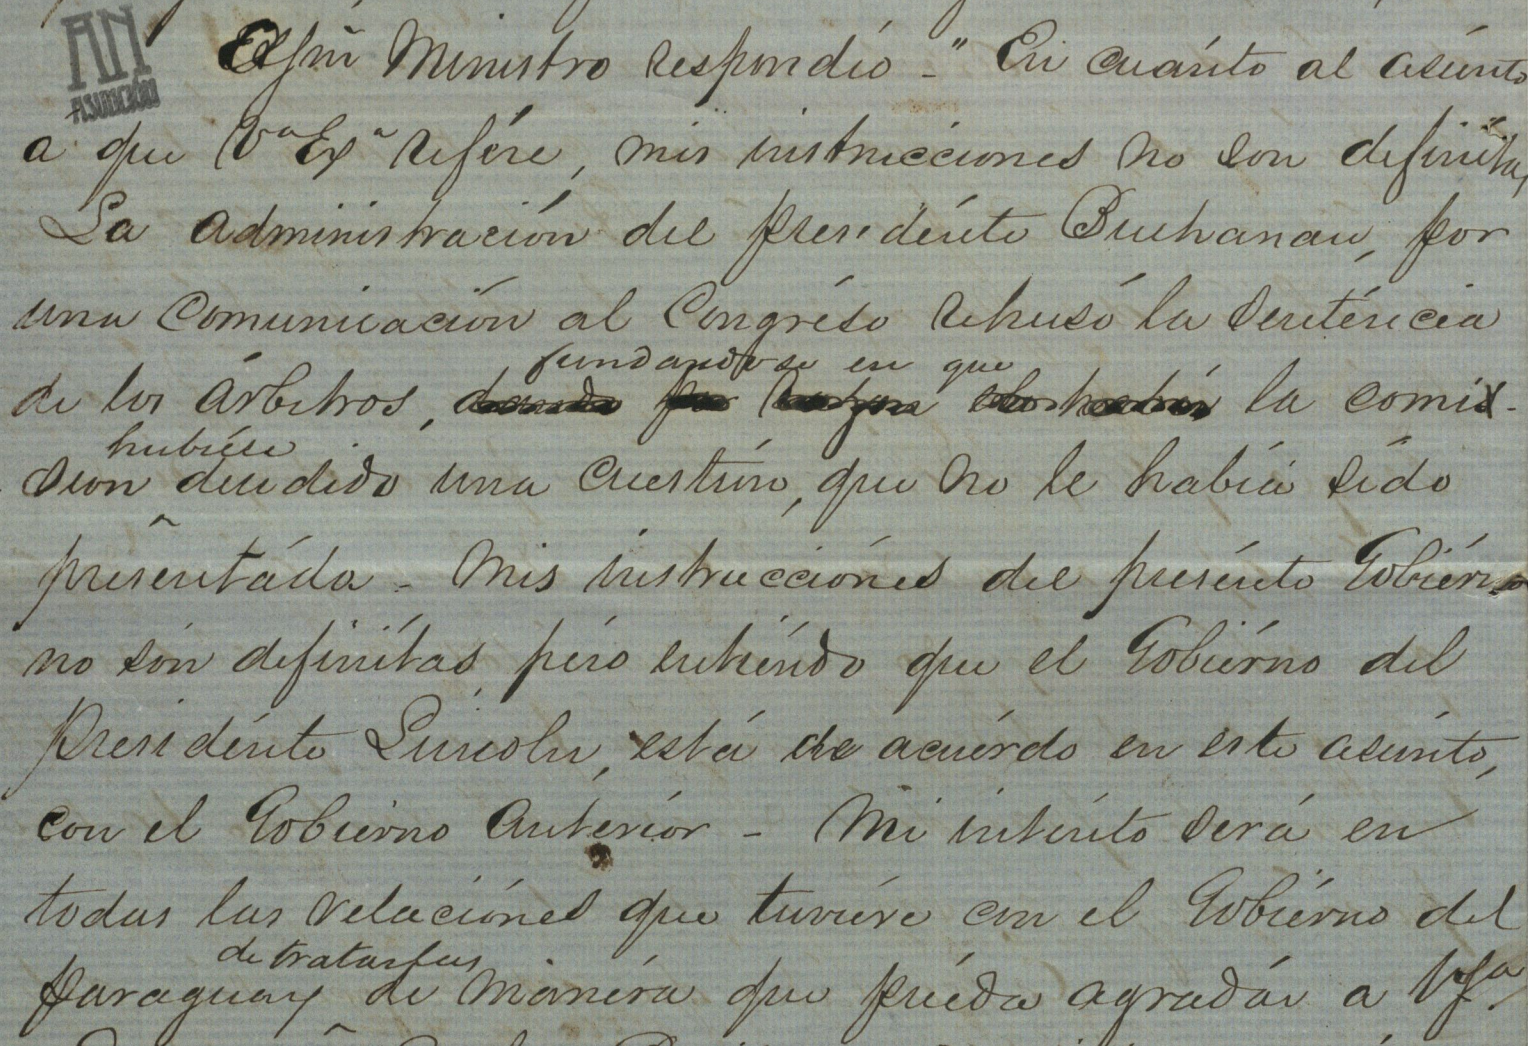 AN
ASUNCION
El Sñr Ministro respondío - " En cuánto al asúnto
a que Va Exa refére, mis instrucciones no son definítas,
La administración del presidénte Buchanan, por
una comunicación al Congréso rehusó la senténcia
fundandose en que
de los árbitros, la comis-
hubiése
sion decidido una cuestión, que no le había sído
presentáda - Mis instrucciónes del presénte Gobiérno
no són definítas pero entiéndo que el Gobiérno del
Presidénte Lincoln, está de acuérdo en este asúnto,
con el Gobierno Anteríor - Mi inténto será en
todas las relaciónes que tuviére con el Gobiérno del
de tratarlas
Paraguay de manéra que puéda agradár a